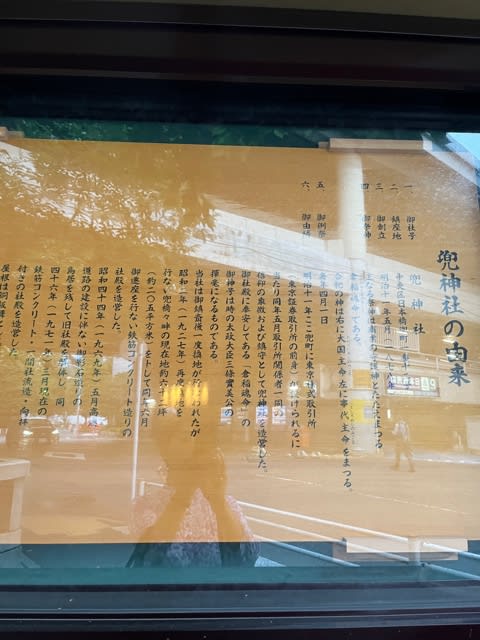 兜神社の由来
一、御社号 兜神社
二、鎮座地 中央区日本橋兜町
三、御創立 明治十一年五月（一八七八）
四、御祭神
主なる御祭神は商業の守護神とたたえまつる
倉稲魂命である。
合祀の神は右に大国主命左に事代主命をまつる。
五、御例祭 毎年四月一日
六、御由緒
明治十一年ここ兜町に東京株式取引所
（東京証券取引所の前身）が設けられるに
当たり同年五月取引所関係者一同の
信仰の象徴および鎮守として兜神社を造営した。
御社殿に奉安してある「倉稲魂命」の
御神号は時の太政大臣三條實美公の
揮毫になるものである。
当社は御鎮斎後一度換地が行なわれたが
昭和二年（一九二七年）再度換地を
行ない兜橋々畔の現在地約六十二坪
（約二〇五平方米）をトして同年六月
御遷座を行ない鉄筋コンクリート造りの
社殿を造営した。
昭和四十四年（一九六九年）五月高速
道路の建設に伴ない御影石造りの
鳥居を残して旧社殿を解体し 同
四十六年（一九七一年）三月現在の
鉄筋コンクリート・一間社流造・向拝
付きの社殿を造営した。
屋根は銅板葺とし